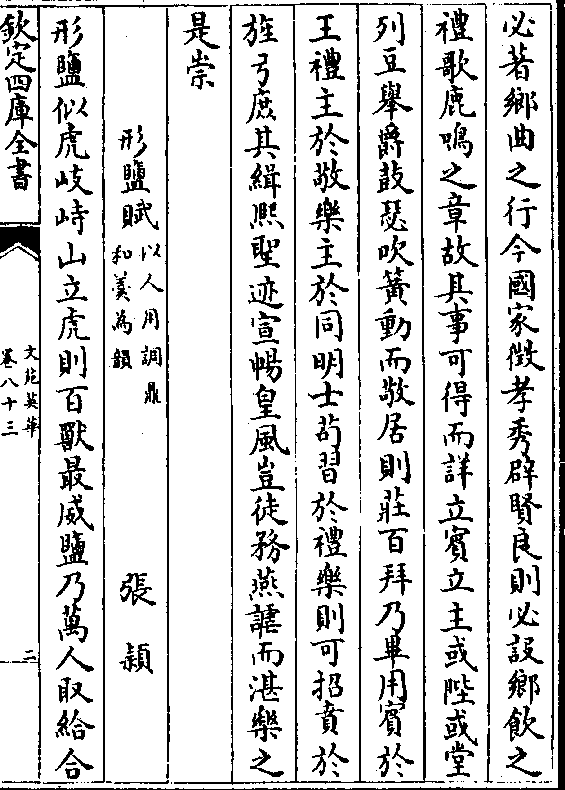 必著鄉曲之行今國家徴孝秀辟賢良則必設鄉飲之
禮歌鹿鳴之章故其事可得而詳立賓立主或陛或堂
列豆舉爵鼓瑟吹簧動而敬居則莊百拜乃畢用賓於
王禮主於敬樂主於同明士茍習於禮樂則可招賁於
旌弓庶其緝熈聖迹宣暢皇風豈徒務燕䜩而湛樂之
是崇
形鹽賦以人用調鼎和羹為韻 張頴
形鹽似虎岐峙山立虎則百獸最威鹽乃萬人取給合
欽定四庫全書
文苑英華
卷八十三
二